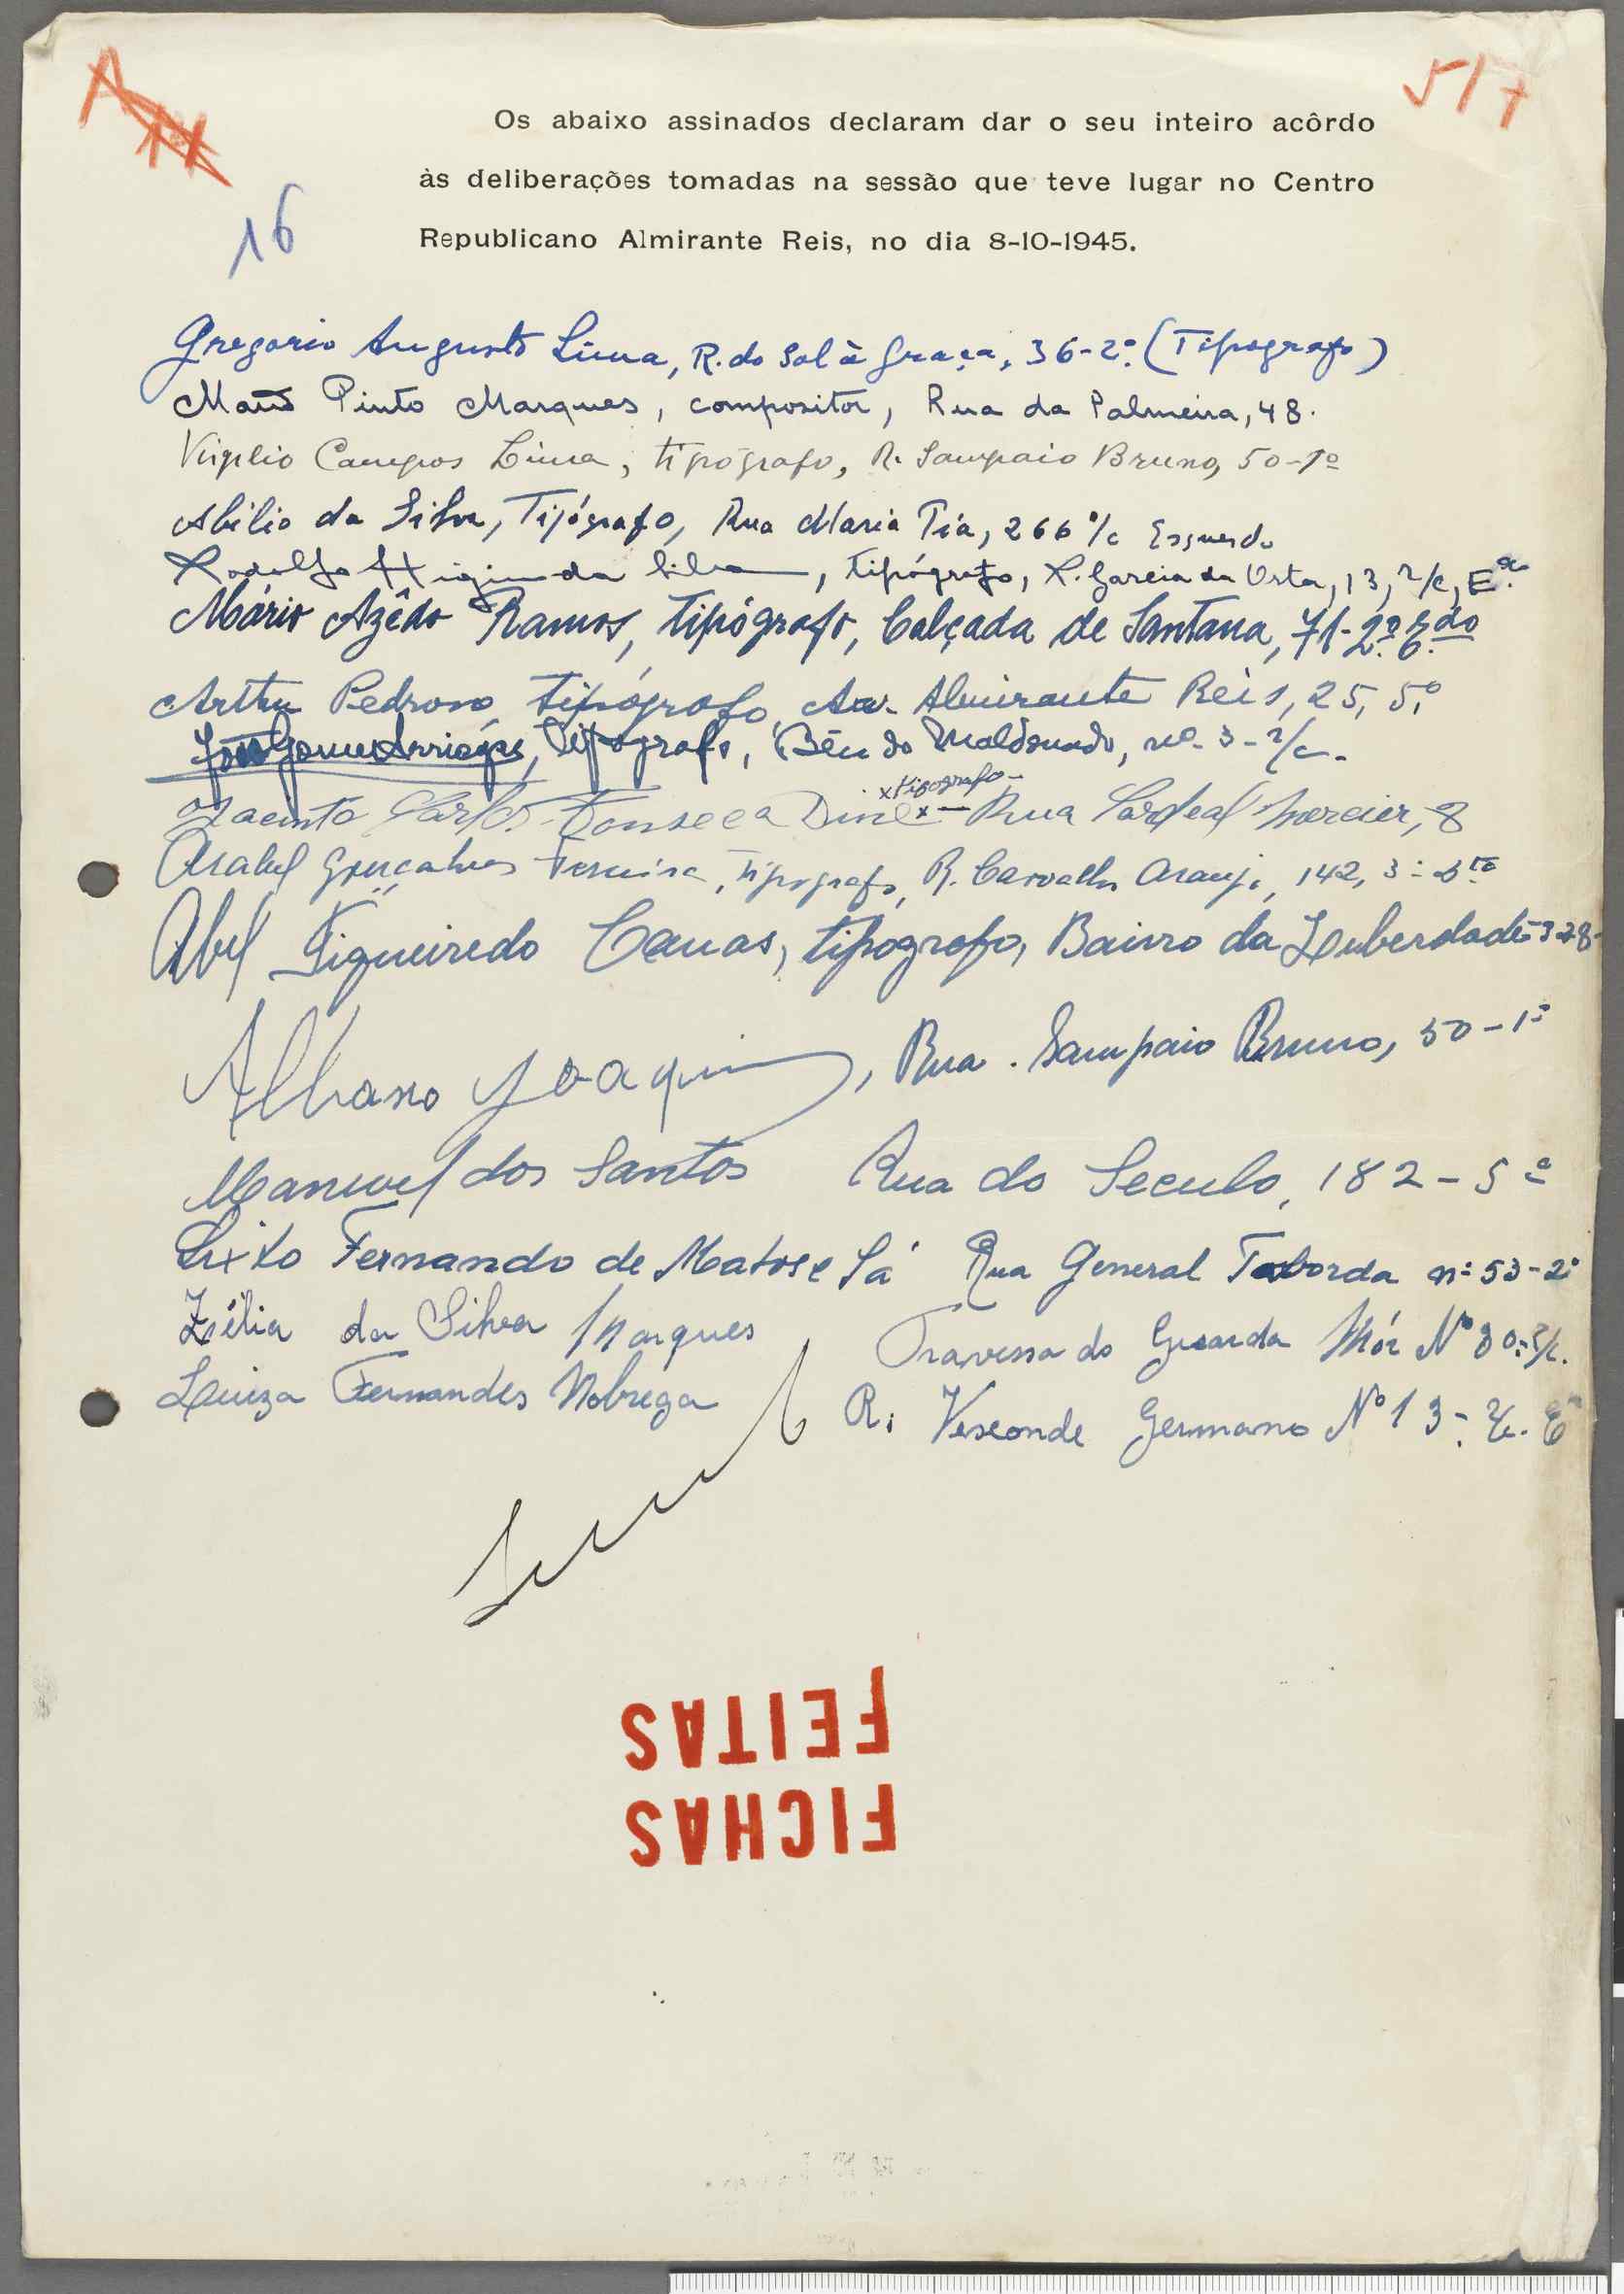 517
16
Os abaixo assinados declaram dar o seu inteiro acôrdo
às deliberações tomadas na sessão que teve lugar no Centro
Republicano Almirante Reis, no dia 8-10-1945.
Gregorio Augusto Lima, R. do Sol à Graça, 36-2º. (Tipografo)
Pinto Marques, compositor, Rua da Palmeira, 48.
Virgilio Campos Lima, tipógrafo, R. Sampaio Bruno, 50-1º
Abilio da Silva, Tipógrafo, Rua Maria Pia, 266 r/c Esquerdo
Rodolfo Higino da Silva, tipógrafo, R. Garcia da Orta, 13, r/c, E
Mário Azêdo Ramos, tipógrafo, Calçada de Santana, 71-2º. E.do
Arthur Pedroso, tipógrafo, Av. Almirante Reis, 25, 5º
José Gomes Arriegas, Tipografo, Bêco do Maldonado, nº. 3-r/c-
x tipografo-
Jacinto Carlos Fonseca Diniz x- Rua Cardeal Mercier, 8
Gonçalves Ferreira, Tipografo, R. Carvalho Araujo, 142, 3º Dto
Abel Figueiredo Canas, tipografo, Bairro da Leberdade-328-
Albano Joaquim, Rua. Sampaio Bruno, 50-1º
Manuel dos Santos Rua do Seculo, 182-5º
Sixto Fernando de Matos e Sá Rua General Taborda nº 53-2º
Zélia da Silva Marques Travessa do Guarda Mór Nº 30-r/c.
Luiza Fernandes Nobrega R. Vesconde Germano Nº 13-r/c. E
FICHAS
FEITAS